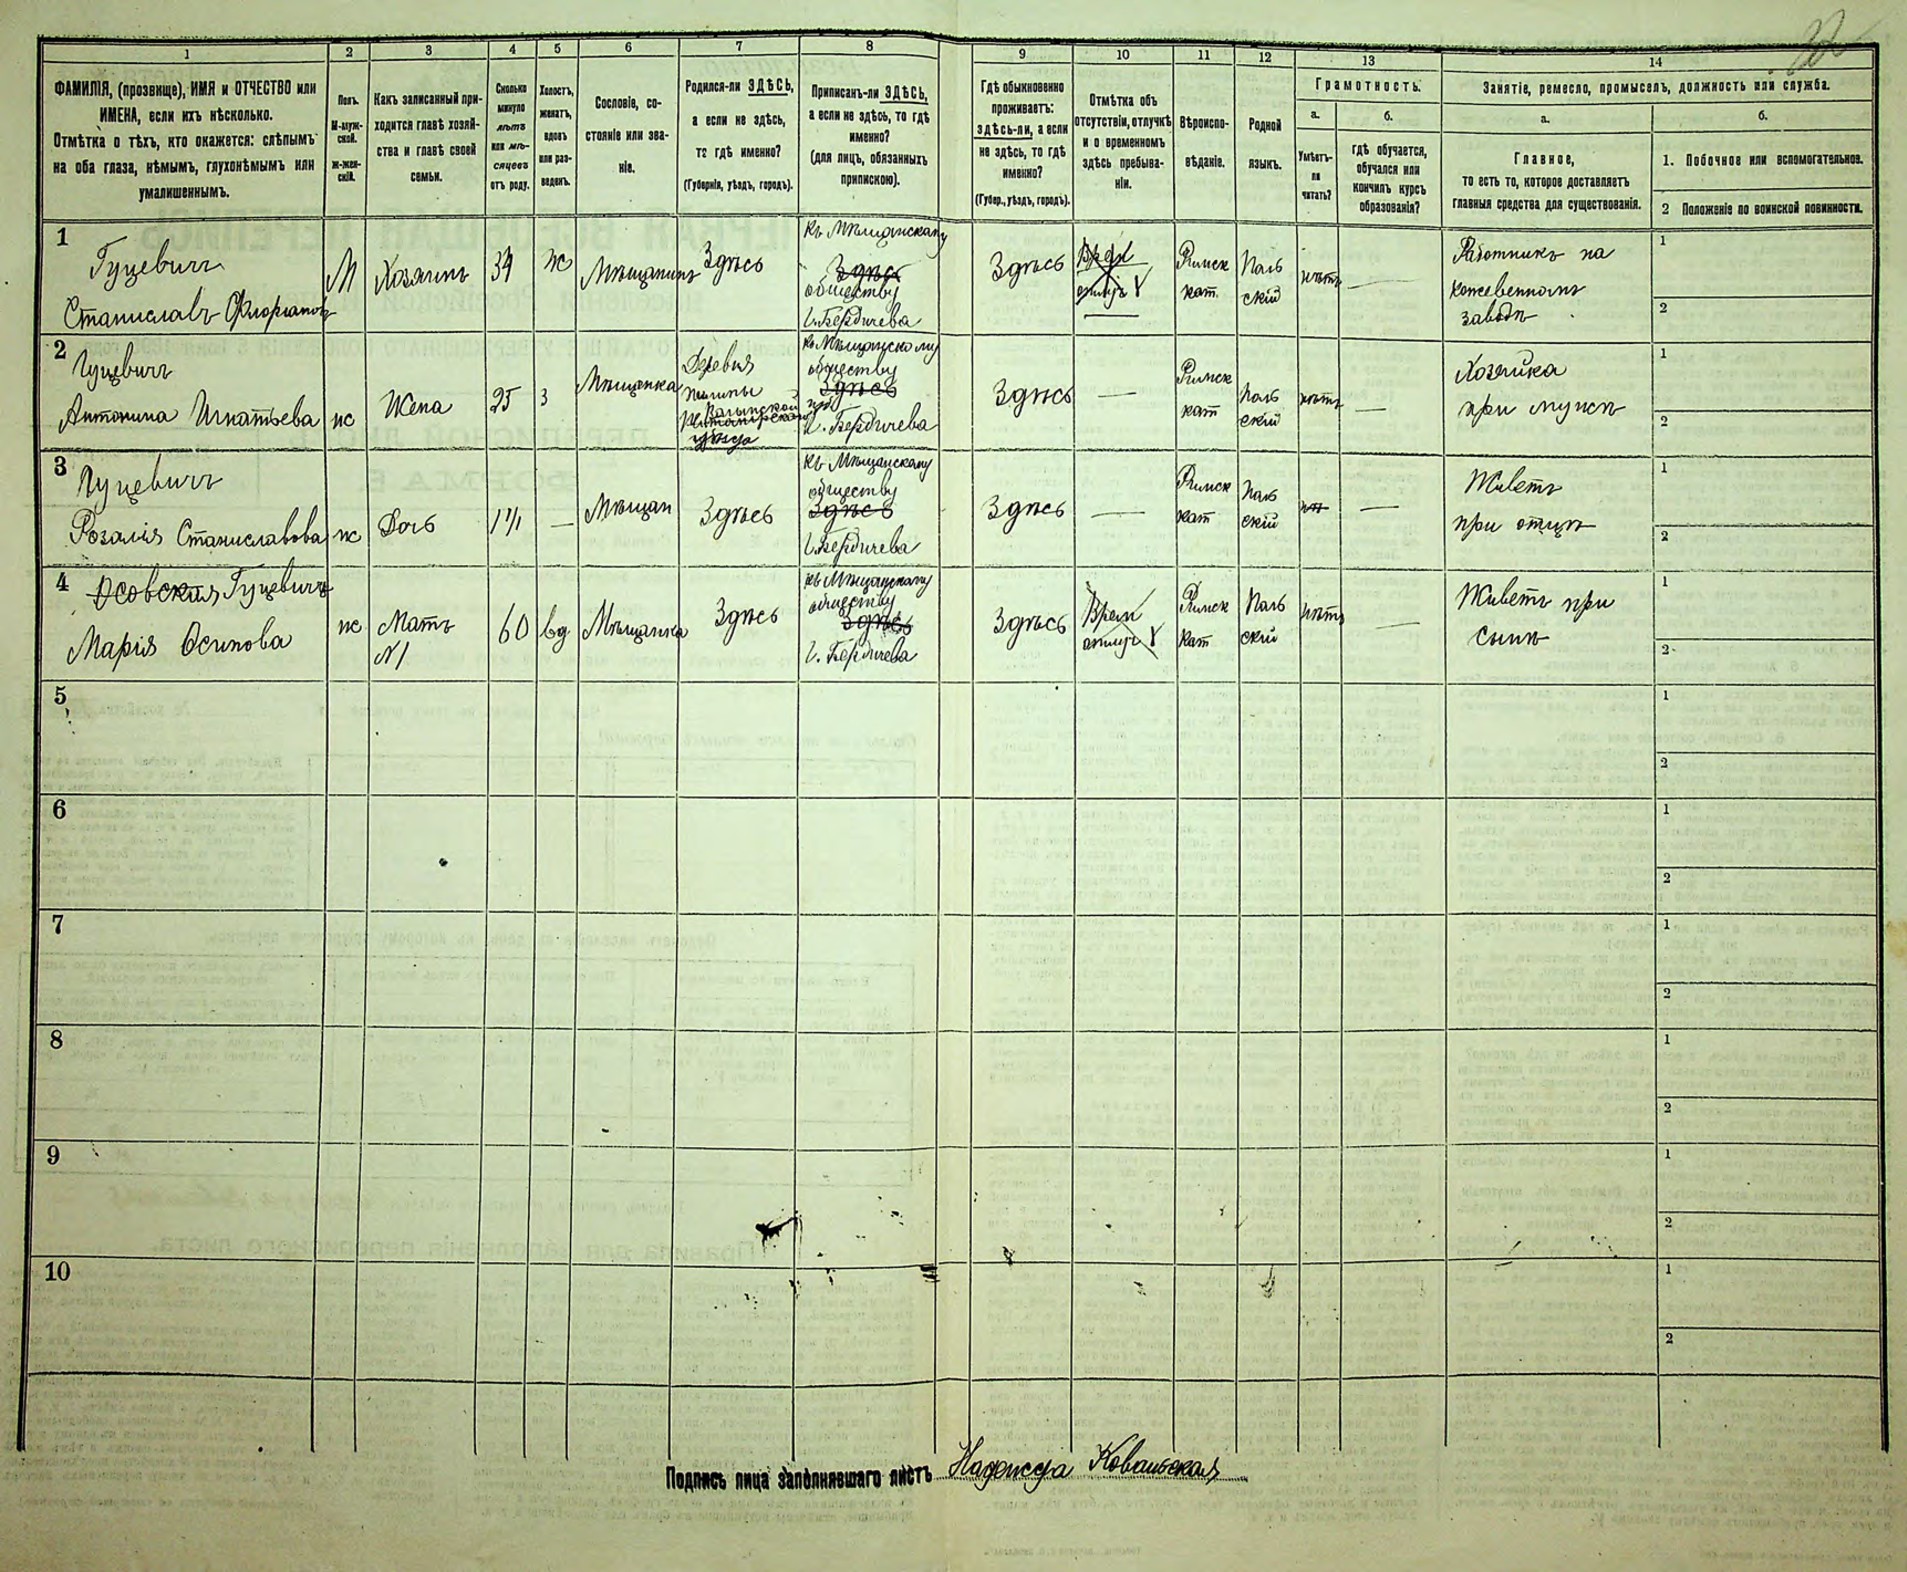 32
1
2
3
4
5
6
7
8
9
10
11
12
13
14
ФАМИЛІЯ, (прозвище), ИМЯ и ОТЧЕСТВО или
ИМЕНА, если ихъ нѣсколько.
Отмѣтка о тѣхъ, кто окажется: слѣпымъ
на оба глаза, нѣмымъ, глухонѣмымъ или
умалишеннымъ.
Полъ.
М-муж-
ской.
Ж-жен-
скій.
Какъ записанный при-
ходится главѣ хозяй-
ства и главѣ своей
семьи.
Сколько
минуло
лѣтъ
или мѣ-
сяцевъ
отъ роду.
Холостъ,
женатъ,
вдовъ
или раз-
веденъ.
Сословіе, со-
стояніе или зва-
ніе.
Родился-ли ЗДѢСЬ,
а если не здѣсь,
то гдѣ именно?
(Губернія, уѣздъ, городъ).
Приписанъ-ли ЗДѢСЬ,
а если не здѣсь, то гдѣ
именно?
(для лицъ, обязанныхъ
припискою).
Гдѣ обыкновенно
проживаетъ:
здѣсь-ли, а если
не здѣсь, то гдѣ
именно?
(Губер., уѣздъ, городъ).
Отмѣтка объ
отсутствіи, отлучкѣ
и о временномъ
здѣсь пребыва-
ніи.
Вѣроиспо-
вѣданіе.
Родной
языкъ.
Грамотность.
а.
Умѣетъ-
ли
читать?
б.
гдѣ обучается,
обучался или
кончилъ курсъ
образованія?
Занятіе, ремесло, промыселъ, должность или служба.
а.
Главное,
то есть то, которое доставляетъ
главныя средства для существованія.
б.
1. Побочное или вспомогательное.
2 Положеніе по воинской повинности.
1
Гуцевичъ
Станиславъ Флоріановъ
М
Хозяинъ
34
ж
Мѣщанинъ
Здѣсь
къ Мѣщанскому
Здѣсь
обществу
г. Бердичева
Здѣсь
Врем
отлуч
Римск
кат.
Поль
скій
нѣтъ
—
Работникъ на
кожевенномъ
заводѣ
1
2
2
Гуцевичъ
Антонина Игнатьева
ж
Жена
25
З
Мѣщанка
Деревня
уѣзда
къ Мѣщанскому
обществу
Здѣсь
г. Бердичева
Здѣсь
—
Римск
кат
Поль
скій
нѣтъ
—
Хозяйка
при мужѣ
1
2
3
Гуцевичъ
Розалія Станиславова
ж
Дочь
—
Мѣщан
Здѣсь
къ Мѣщанскому
обществу
Здѣсь
г. Бердичева
Здѣсь
—
Римск
кат
Поль
скій
—
Живетъ
при отцѣ
1
2
4
Осовская Гуцевичъ
Марія Осипова
ж
Мать
N1
60
вд
Мѣщанка
Здѣсь
къ Мѣщанскому
обществу
Здѣсь
г. Бердичева
Здѣсь
Врем
отлуч
Римск
кат
Поль
скій
нѣтъ
—
Живетъ при
сынѣ
1
2
5
1
2
6
1
2
7
1
2
8
1
2
9
1
2
10
1
2
Подпись лица заполнявшаго листъ Надежда Ковальская